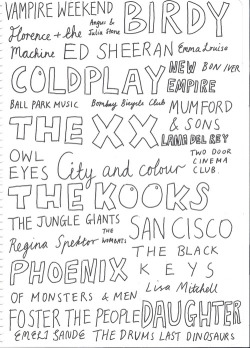 VAMPIRE WEEKEND
BIRDY
Angus &
Julia Stone
Florence + the
Machine
ED SHEERAN
Emma Louise
COLDPLAY
NEW
EMPIRE
BON IVER
BALL PARK MUSIC
Bombay Bicycle Club
MUMFORD
& SONS
THE XX
LANA DEL REY
OWL
EYES
City and colour
TWO DOOR
CINEMA
CLUB.
THE KOOKS
THE JUNGLE GIANTS
SAN CISCO
Regina Spektor
THE
WOMBATS
THE BLACK
KEYS
PHOENIX
OF MONSTERS & MEN
Lisa Mitchell
FOSTER THE PEOPLE
DAUGHTER
EMELI SANDE
THE DRUMS
LAST DINOSAURS